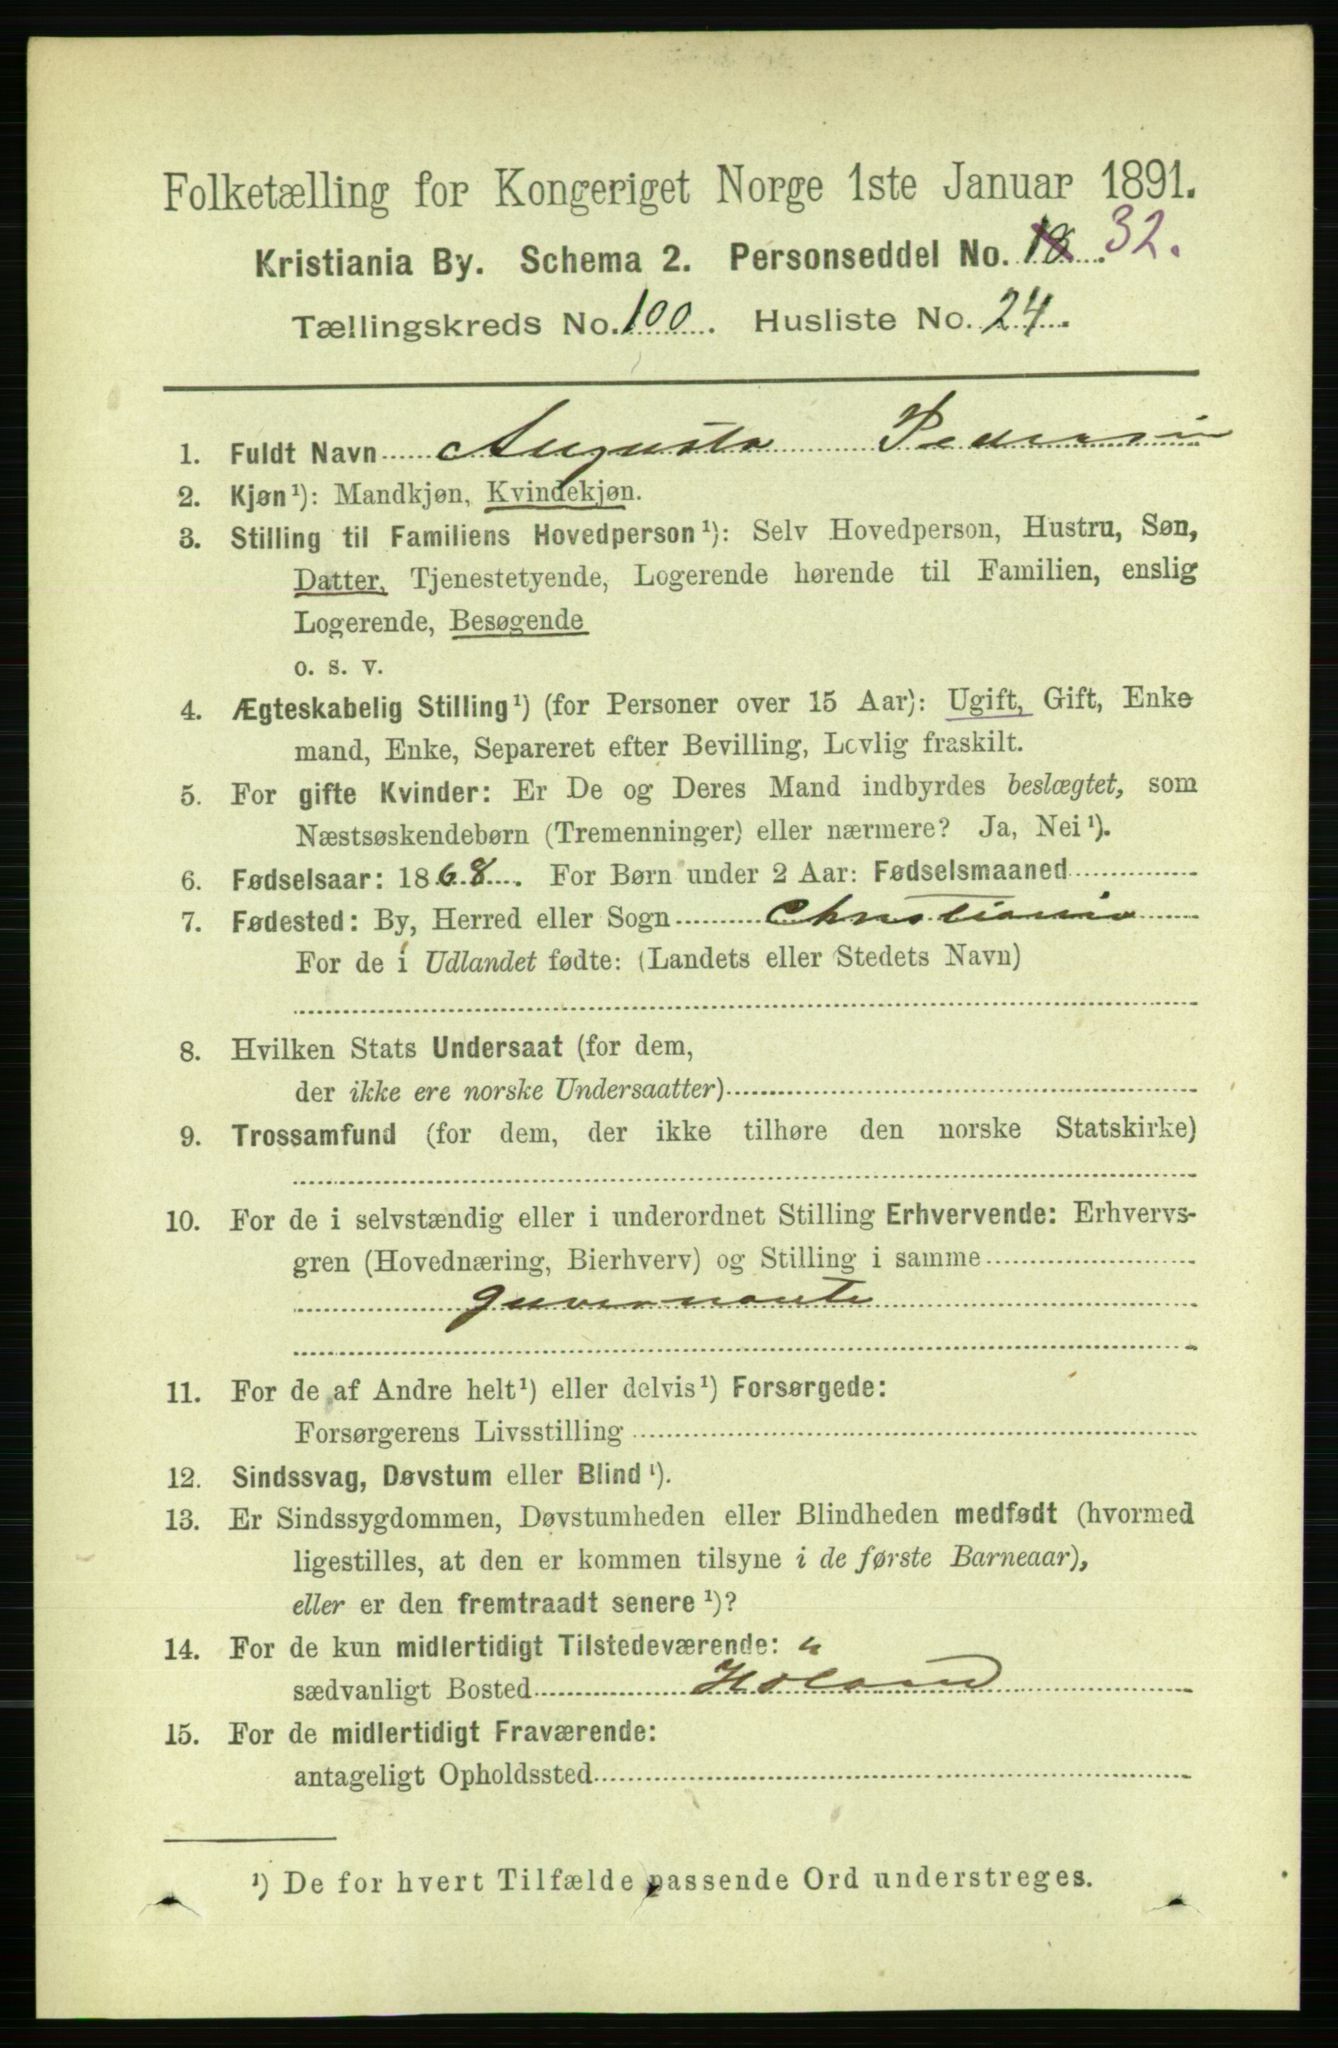 Folketælling for Kongeriget Norge 1ste Januar 1891.
Kristiania By. Schema 2. Personseddel No. 18 32.
Tællingskreds No. 100. Husliste No. 24.
1. Fuldt Navn Augusta Pedersen
2. Kjøn¹): Mandkjøn, Kvindekjøn.
3. Stilling til Familiens Hovedperson¹): Selv Hovedperson, Hustru, Søn,
Datter, Tjenestetyende, Logerende hørende til Familien, enslig
Logerende, Besøgende
o. s. v.
4. Ægteskabelig Stilling¹) (for Personer over 15 Aar): Ugift, Gift, Enke
mand, Enke, Separeret efter Bevilling, Lovlig fraskilt.
5. For gifte Kvinder: Er De og Deres Mand indbyrdes beslægtet, som
Næstsøskendebørn (Tremenninger) eller nærmere? Ja, Nei¹).
6. Fødselsaar: 1868. For Børn under 2 Aar: Fødselsmaaned
7. Fødested: By, Herred eller Sogn Christiania
For de i Udlandet fødte: (Landets eller Stedets Navn)
8. Hvilken Stats Undersaat (for dem,
der ikke ere norske Undersaatter)
9. Trossamfund (for dem, der ikke tilhøre den norske Statskirke)
10. For de i selvstændig eller i underordnet Stilling Erhvervende: Erhvervs-
gren (Hovednæring, Bierhverv) og Stilling i samme
Guvernante
11. For de af Andre helt¹) eller delvis¹) Forsørgede:
Forsørgerens Livsstilling
12. Sindssvag, Døvstum eller Blind¹).
13. Er Sindssygdommen, Døvstumheden eller Blindheden medfødt (hvormed
ligestilles, at den er kommen tilsyne i de første Barneaar),
eller er den fremtraadt senere¹)?
14. For de kun midlertidigt Tilstedeværende:
sædvanligt Bosted Høland
15. For de midlertidigt Fraværende:
antageligt Opholdssted
¹) De for hvert Tilfælde passende Ord understreges.